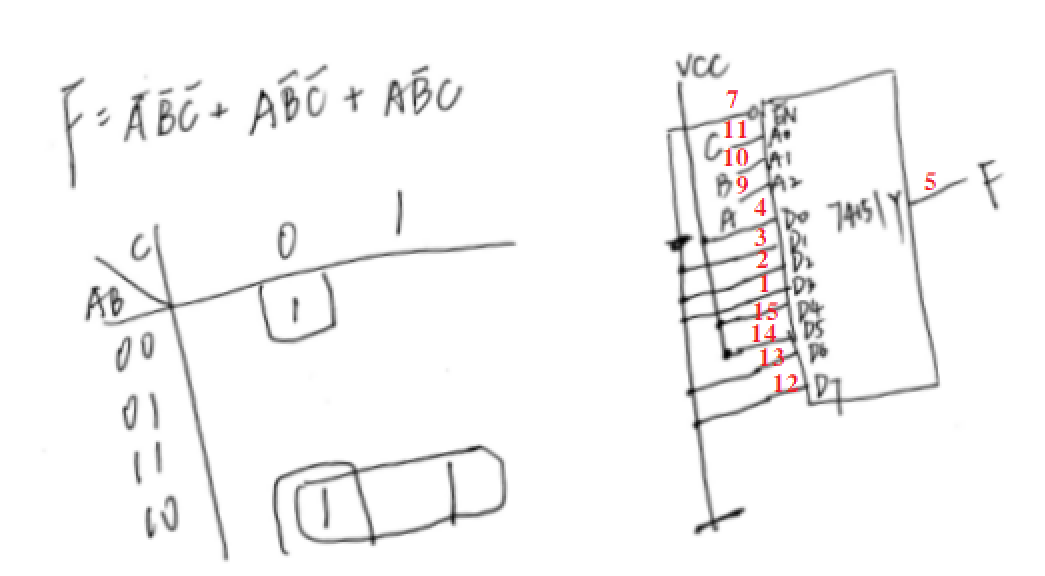 F = A̅B̅C̅ + AB̅C̅ + AB̅C
C 0 1
AB
00
01
11
10
1
1 1
VCC
7 E̅N̅
C 11 A0
B 10 A1
A 9 A2
4 D0
3 D1
2 D2
1 D3
15 D4
14 D5
13 D6
12 D7
74151 Y 5 F